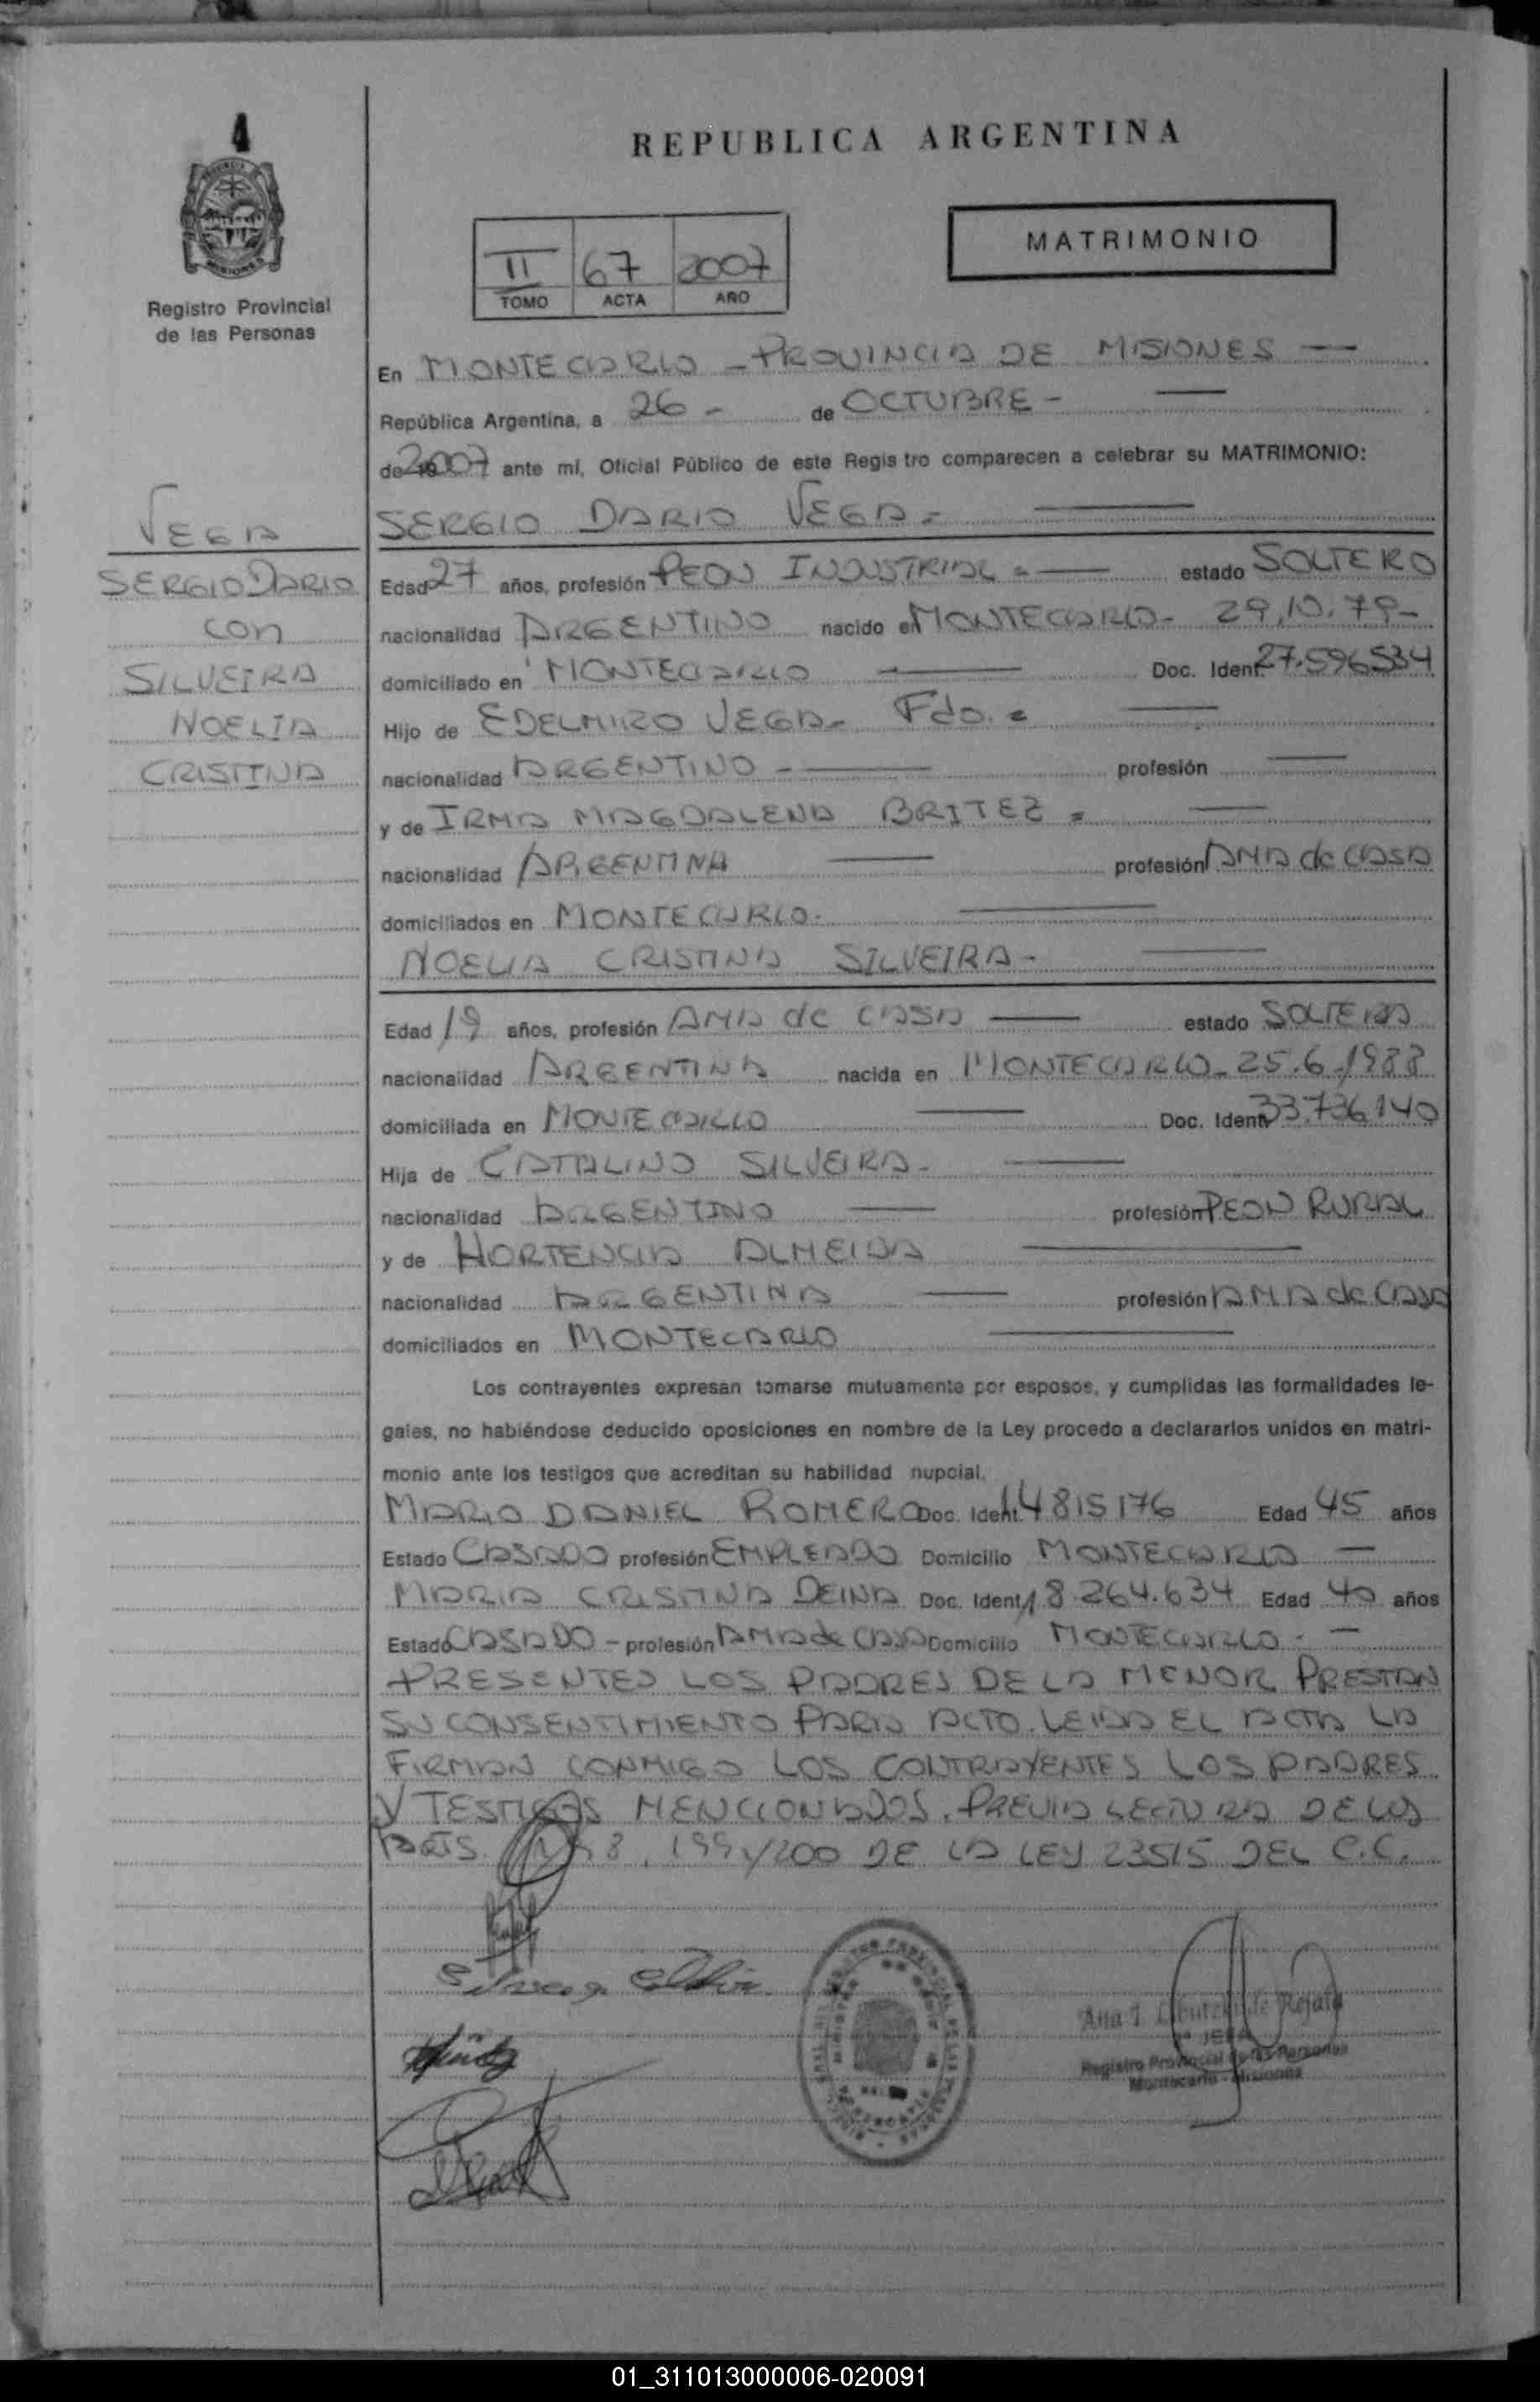 4
REPUBLICA ARGENTINA
MATRIMONIO
II 67 2007
TOMO ACTA AÑO
Registro Provincial
de las Personas
En MONTECARLO - PROVINCIA DE MISIONES —
República Argentina, a 26 - de OCTUBRE - —
de 2007 ante mí, Oficial Público de este Regis tro comparecen a celebrar su MATRIMONIO:
VEGA
SERGIO DARIO
con
SILVEIRA
NOELIA
CRISTINA
SERGIO DARIO VEGA = —
Edad 27 años, profesión PEON INDUSTRIAL = — estado SOLTERO
nacionalidad ARGENTINO nacido en MONTECARLO - 29.10.79 -
domiciliado en MONTECARLO — Doc. Ident. 27.596534
Hijo de EDELMIRO VEGA - Fdo. = —
nacionalidad ARGENTINO - — profesión —
y de IRMA MAGDALENA BRITEZ = —
nacionalidad ARGENTINA — profesión AMA de CASA
domiciliados en MONTECARLO. —
NOELIA CRISTINA SILVEIRA - —
Edad 19 años, profesión AMA de CASA — estado SOLTERA
nacionalidad ARGENTINA nacida en MONTECARLO - 25.6.1988
domiciliada en MONTECARLO — Doc. Ident. 33.736140
Hija de CATALINO SILVEIRA - —
nacionalidad ARGENTINO — profesión PEON RURAL
y de HORTENCIA ALMEIDA —
nacionalidad ARGENTINA — profesión AMA de CASA
domiciliados en MONTECARLO —
Los contrayentes expresan tomarse mutuamente por esposos, y cumplidas las formalidades le-
gales, no habiéndose deducido oposiciones en nombre de la Ley procedo a declararlos unidos en matri-
monio ante los testigos que acreditan su habilidad nupcial.
MARIO DANIEL ROMERO Doc. Ident. 14815176 Edad 45 años
Estado CASADO profesión EMPLEADO Domicilio MONTECARLO —
MARIA CRISTINA DEINA Doc. Ident. 18.264.634 Edad 40 años
Estado CASADO - profesión AMA de CASA Domicilio MONTECARLO. —
PRESENTES LOS PADRES DE LA MENOR PRESTAN
SU CONSENTIMIENTO PARA ACTO. LEIDA EL ACTA LA
FIRMAN CONMIGO LOS CONTRAYENTES LOS PADRES
Y TESTIGOS MENCIONADOS. PREVIA LECTURA DE LOS
ARTS. 198, 199 y 200 DE LA LEY 23515 DEL C.C.
Registro Provincial de las Personas
Montecarlo - Misiones
01_311013000006-020091